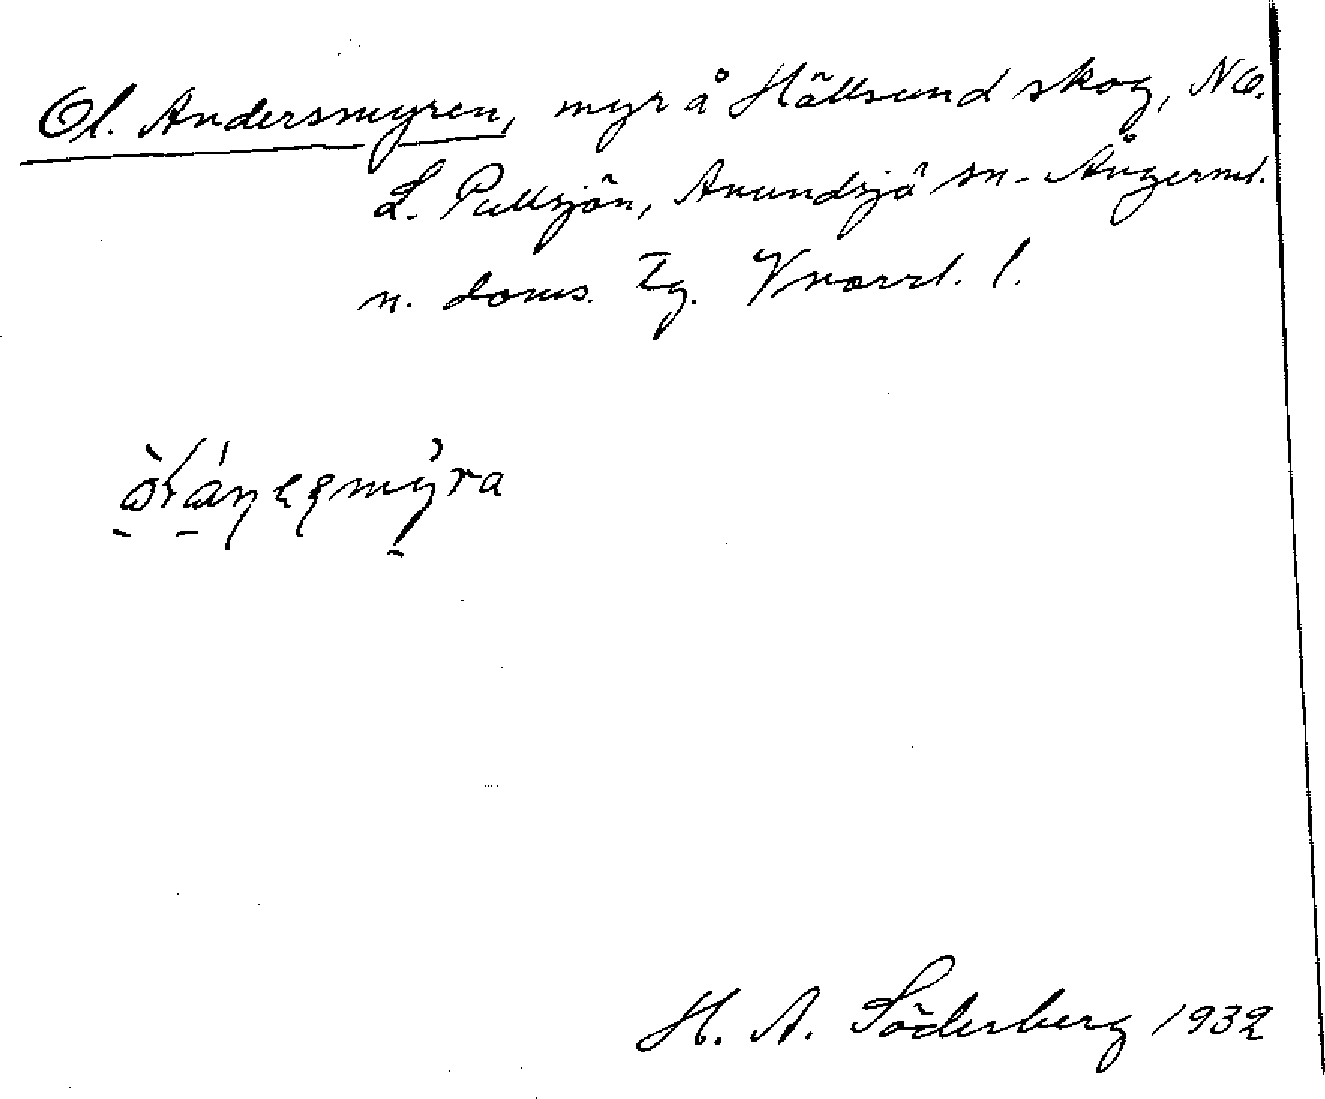 Ol. Andersmyren, myr å Hällsund skog, NO.
L. Pallsjön, Anundsjö sn. Ångerml.
n. doms. Tg. V norrl. l.
H. A. Söderberg 1932